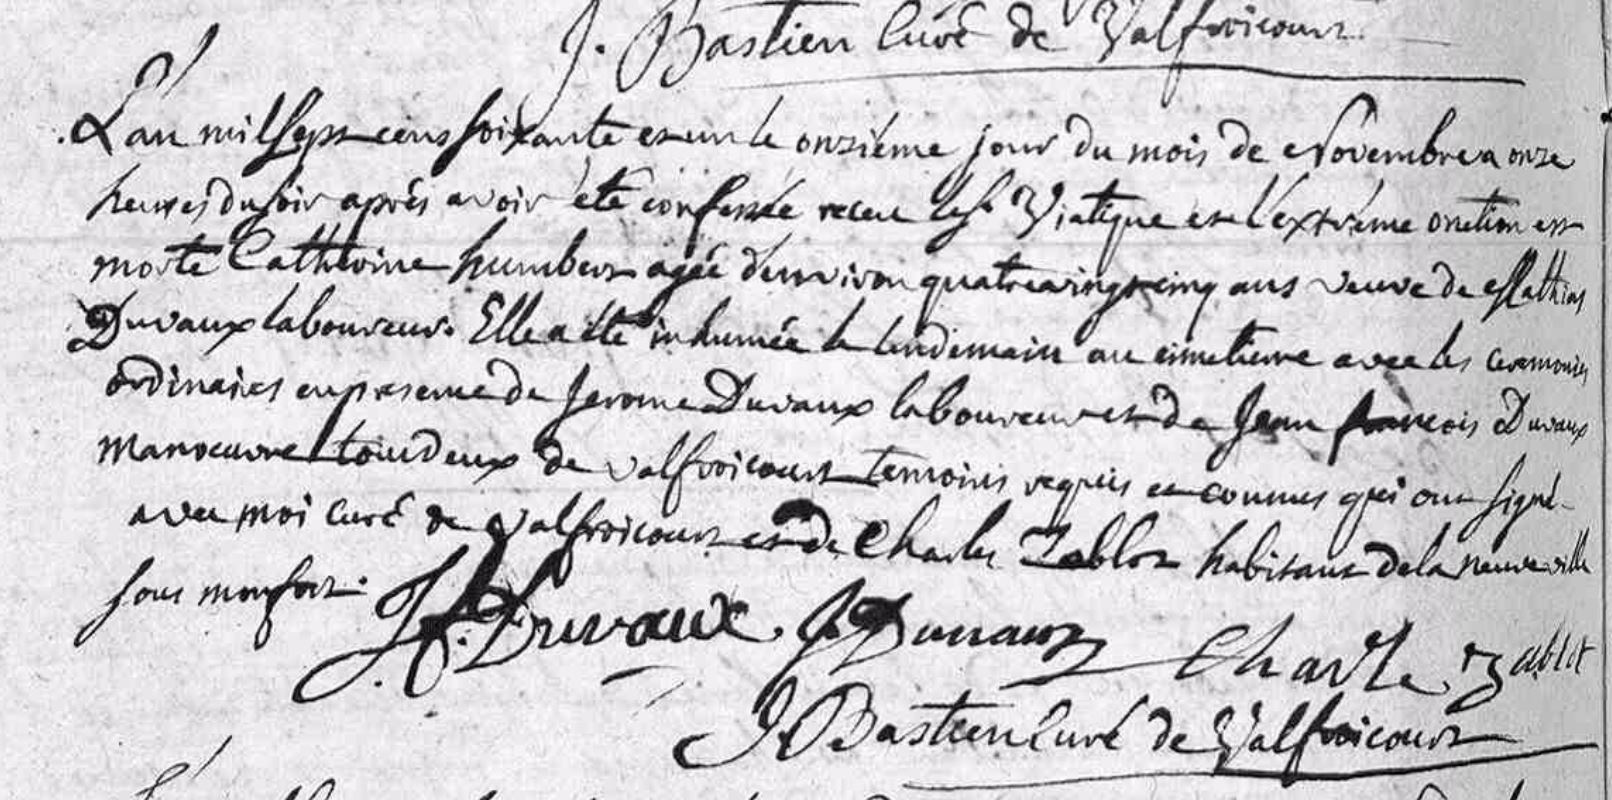 J. Bastien Curé de Valfroicourt
L'an mil sept cens soixante et un le onzième jour du mois de Novembre a onze
heures du soir après avoir été confessée receu le st Viatique et l'extrème onction est
morte Catherine humbert agée d'environ quatrevingt cinq ans veuve de Mathias
Duvaux laboureur. Elle a été inhumée le lendemain au cimetierre avec les ceremonies
ordinaires en presence de Jerome Duvaux laboureur et de Jean françois Duvaux
Manoeuvre tou deux de valfroicourt temoins requis et connus qui ont signé
avec moi curé de Valfroicourt et de Charles Zablot habitant de la neuveville
sous monfort.
J f. Duvaux. J. Duvaux Charle Zablot
J. Bastien Curé de Valfroicourt